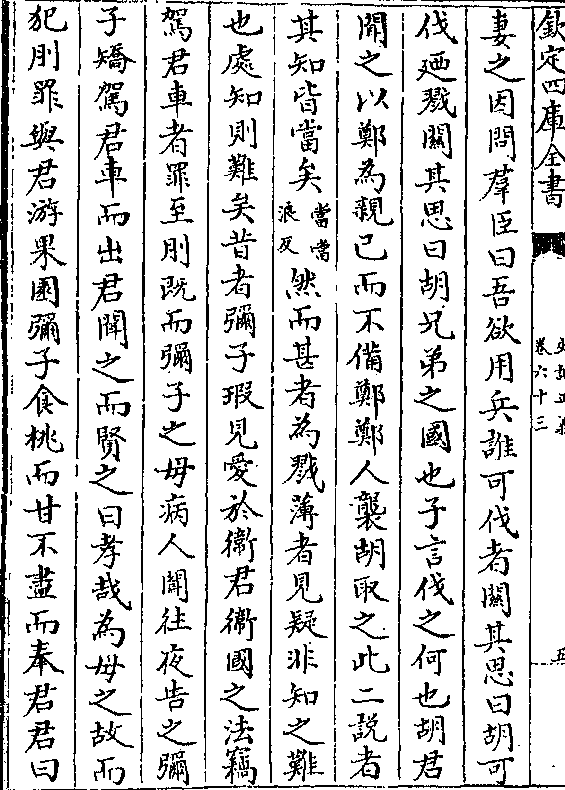 欽定四庫全書
史記正義
卷六十三
五
妻之因問羣臣曰吾欲用兵誰可伐者關其思曰胡可
伐廼戮關其思曰胡兄弟之國也子言伐之何也胡君
聞之以鄭為親己而不備鄭鄭人襲胡取之此二說者
其知皆當矣當當浪反然而甚者為戮薄者見疑非知之難
也處知則難矣昔者彌子瑕見愛於衞君衞國之法竊
駕君車者罪至刖既而彌子之母病人聞往夜告之彌
子矯駕君車而出君聞之而賢之曰孝哉為母之故而
犯刖罪與君游果園彌子食桃而甘不盡而奉君君曰